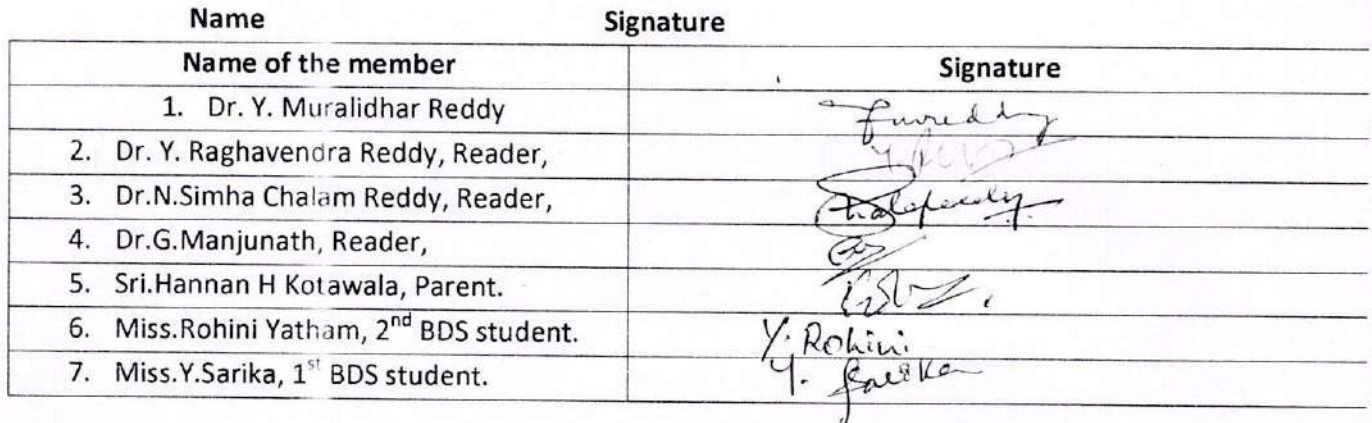 Name Signature
Name of the member Signature
1. Dr. Y. Muralidhar Reddy
2. Dr. Y. Raghavendra Reddy, Reader,
3. Dr.N.Simha Chalam Reddy, Reader,
4. Dr.G.Manjunath, Reader,
5. Sri.Hannan H Kotawala, Parent.
6. Miss.Rohini Yatham, 2nd BDS student. Y. Rohini
7. Miss.Y.Sarika, 1st BDS student. Y. Sarika